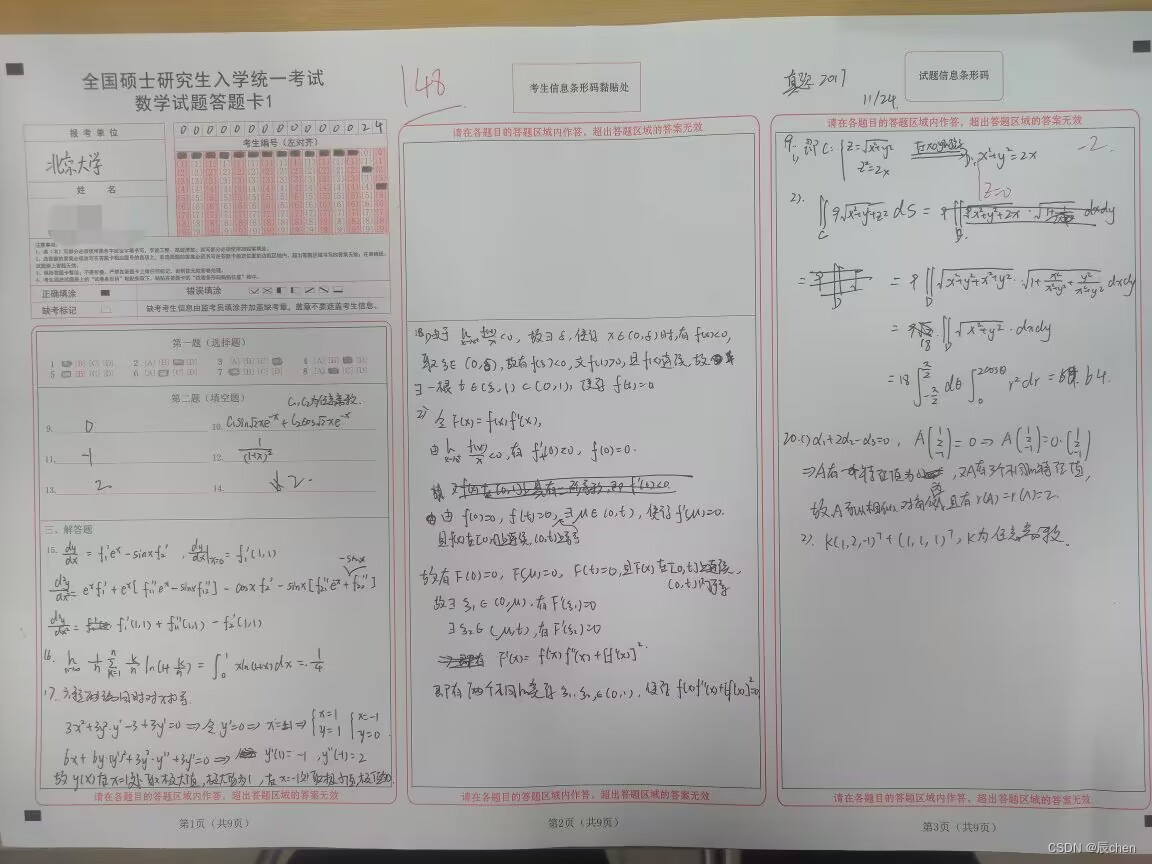 全国硕士研究生入学统一考试
数学试题答题卡1
148
考生信息条形码黏贴处
真题 2017
11/24
试题信息条形码
报考单位
北京大学
姓 名
0 0 0 0 0 0 0 0 0 0 0 0 0 2 4
考生编号（左对齐）
正确填涂
错误填涂
缺考标记
缺考考生信息由监考员填涂并加盖缺考章。盖章不要遮盖考生信息。
第一题（选择题）
第二题（填空题）
C₁,C₂为任意常数.
9. 0
10. C₁sin√2xe^{-x} + C₂cos√2xe^{-x}
11. -1
12. 1/(1+x)²
13. 2
14. 2.
三、解答题
15. dy/dx = f₁'e^x - sinxf₂' , dy/dx|x=0 = f₁'(1,1)
d²y/dx² = e^xf₁' + e^x[f₁₁''e^x - sinxf₁₂''] - cosxf₂' - sinx[f₂₁''e^x + f₂₂'']
-sinx
d²y/dx² = f₁'(1,1) + f₁₁''(1,1) - f₂'(1,1)
16. lim n→∞ 1/n Σ k=1 n k/n ln(1+k/n) = ∫₀¹ xln(1+x)dx = 1/4
17. 方程两边同时对x求导
3x²+3y²·y'-3+3y'=0 ⇒ 令y'=0 ⇒ x=±1 ⇒ { x=1 y=1 { x=-1 y=0
6x+6y·y'²+3y²·y''+3y''=0 ⇒ y''(1)=-1 , y''(-1)=2
故y(x)在x=1处取极大值,极大值为1,在x=-1处取极小值,极小值为0
请在各题目的答题区域内作答，超出答题区域的答案无效
第1页（共9页）
请在各题目的答题区域内作答，超出答题区域的答案无效
18.1)由于 lim f(x)/x <0, 故∃δ, 使得 x∈(0,δ)时,有f(x)<0,
取ξ∈(0,δ),故有f(ξ)<0,又f(1)>0,且f(x)连续,故
∃一根 t∈(ξ,1)⊂(0,1),使得 f(t)=0
2) 令F(x)=f(x)f'(x),
由 lim f(x)/x <0,有 f'₊(0)<0, f(0)=0.
由 f(0)=0, f(t)=0, ∃μ∈(0,t), 使得f'(μ)=0.
且f(x)在[0,t]上连续,(0,t)可导
故有F(0)=0, F(μ)=0, F(t)=0,且F(x)在[0,t]上连续,
(0,t)内可导
故∃ξ₁∈(0,μ),有F'(ξ₁)=0
∃ξ₂∈(μ,t),有F'(ξ₂)=0
F'(x)=f(x)f''(x)+[f'(x)]².
即有两个不同的实根ξ₁,ξ₂∈(0,1),使得 f(x)f''(x)+[f'(x)]²=0
请在各题目的答题区域内作答，超出答题区域的答案无效
第2页（共9页）
请在各题目的答题区域内作答，超出答题区域的答案无效
19. 1) 即C: { z=√x²+y² z²=2x
x²+y²=2x
z=0
-2.
2). ∬ 9√x²+y²+z² dS = dxdy
= 9∬ D √x²+y²+x²+y² · √1+x²/(x²+y²)+y²/(x²+y²) dxdy
= 18 ∬ D √x²+y² · dxdy
= 18∫_{-π/2}^{π/2} dθ ∫₀^{2cosθ} r²dr = 64.
20.(1)α₁+2α₂-α₃=0, A(1 2 -1) = 0 ⇒ A(1 2 -1)=0·(1 2 -1)
⇒A有一特征值为0,又A有3个不同的特征值,
故A可以相似对角化,且有r(A)=r(Λ)=2.
2). k(1,2,-1)ᵀ+(1,1,1)ᵀ, k为任意常数.
请在各题目的答题区域内作答，超出答题区域的答案无效
第3页（共9页）
CSDN @辰chen